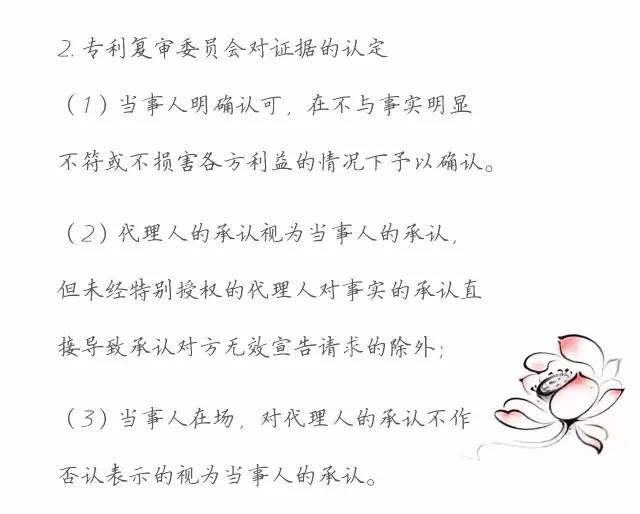 2. 专利复审委员会对证据的认定
（1）当事人明确认可，在不与事实明显
不符或不损害各方利益的情况下予以确认。
（2）代理人的承认视为当事人的承认，
但未经特别授权的代理人对事实的承认直
接导致承认对方无效宣告请求的除外；
（3）当事人在场，对代理人的承认不作
否认表示的视为当事人的承认。